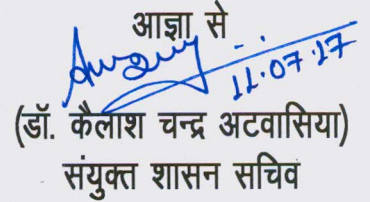 आज्ञा से
11.07.17
(डॉ. कैलाश चन्द्र अटवासिया)
संयुक्त शासन सचिव